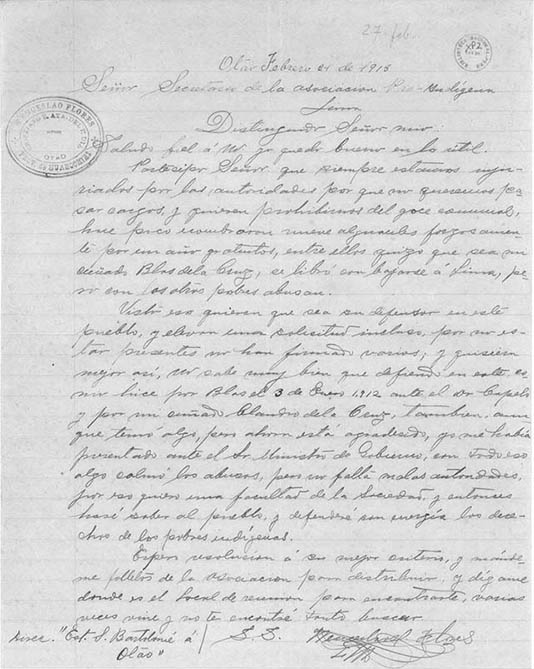 27 feb.
Otao Febrero 21 de 1915
Señor Secretario de la asociacion Pro-Indígena
Lima
Distinguido Señor mio.
Saludo fel á U. yo quedo bueno en lo útil.
Participo Señor que siempre estamos
riados por las autoridades por que no queremos pa
sar cargos, y quieren prohibirnos del goce comunal,
hace poco nombraron nueve alguaciles forzosamen
te por un año gratuitos, entre ellos quizo que sea mi
cuñado Blas de la Cruz, se libró con bajarse á Lima, pe
ro con los otros pobres abusan.
Visto eso quieren que sea su defensor en este
pueblo, y elevan una solicitud incluso, por no es
tar presentes no han firmado varios; y quisiera
mejor así, U. sabe muy bien que defiendo en este
hice por Blas el 3 de Enero 1912 ante el Dr Capelo
y por mi cuñado Claudio de la Cruz, tambien, aun
que temó algo, pero ahora está agradecido, yo me habia
presentado ante el Sr. Ministro de Gobierno, con todo eso
algo calmó los abusos, pero no falta malas autoridades,
por eso quiero una facultad de la Sociedad, y entonces
haré saber al pueblo, y defenderé con energía los dere
chos de los pobres indígenas.
Espero resolucion á su mejor criterio, y mánde
me folletos de la asociacion para distribuir, y dígame
donde es el local de reunion para encontrarle, varias
veces vine y no te encontré tanto buscar
Direc. "Est. S. Bartolomé á
Otao"
S. S.
Wenceslao Flores
WENCESLAO FLORES
OTAO